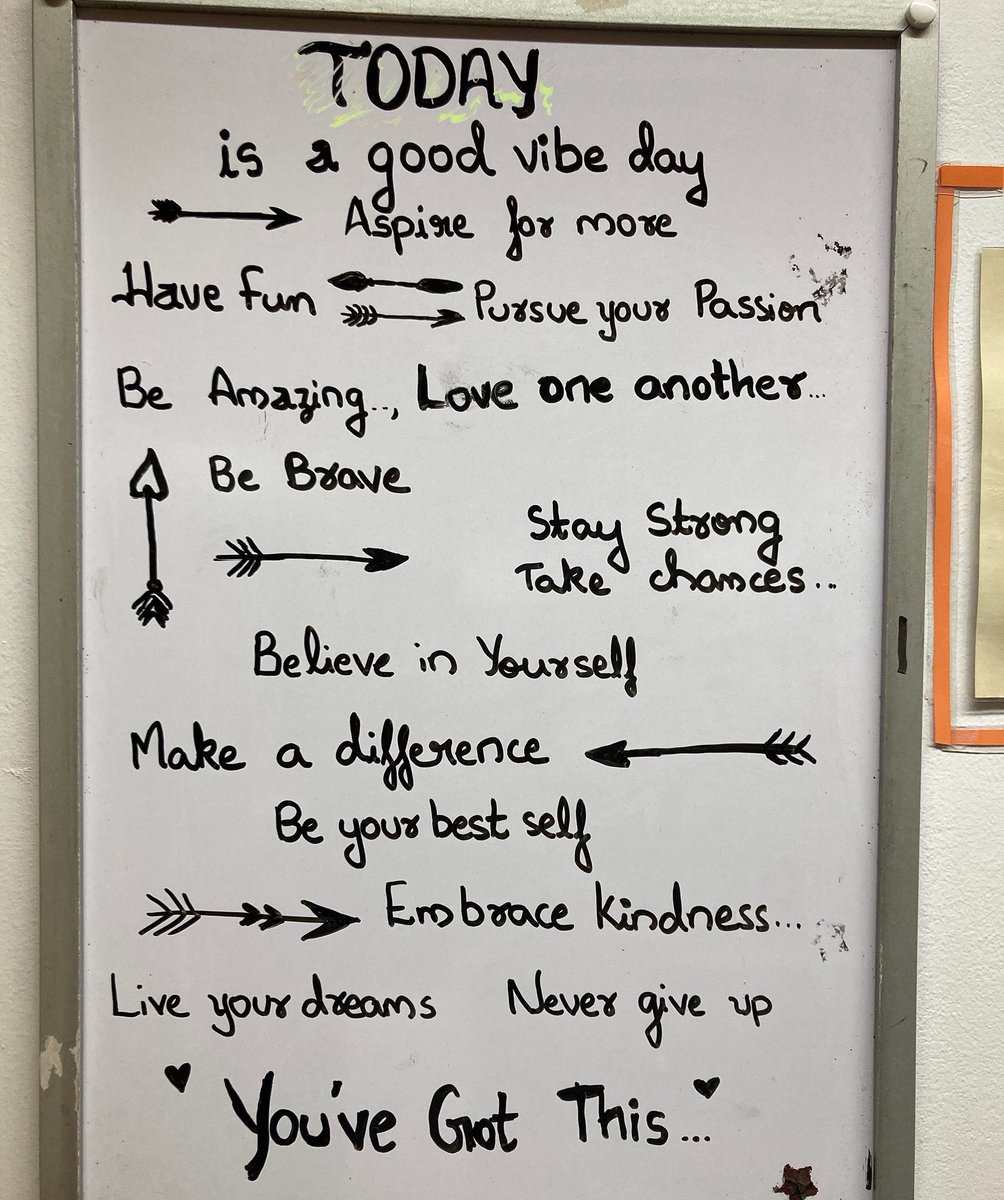 TODAY
is a good vibe day
Aspire for more
Have Fun Pursue your Passion
Be Amazing.., Love one another...
Be Brave
Stay Strong
Take chances...
Believe in Yourself
Make a difference
Be your best self
Embrace kindness...
Live your dreams Never give up
You've Got This...